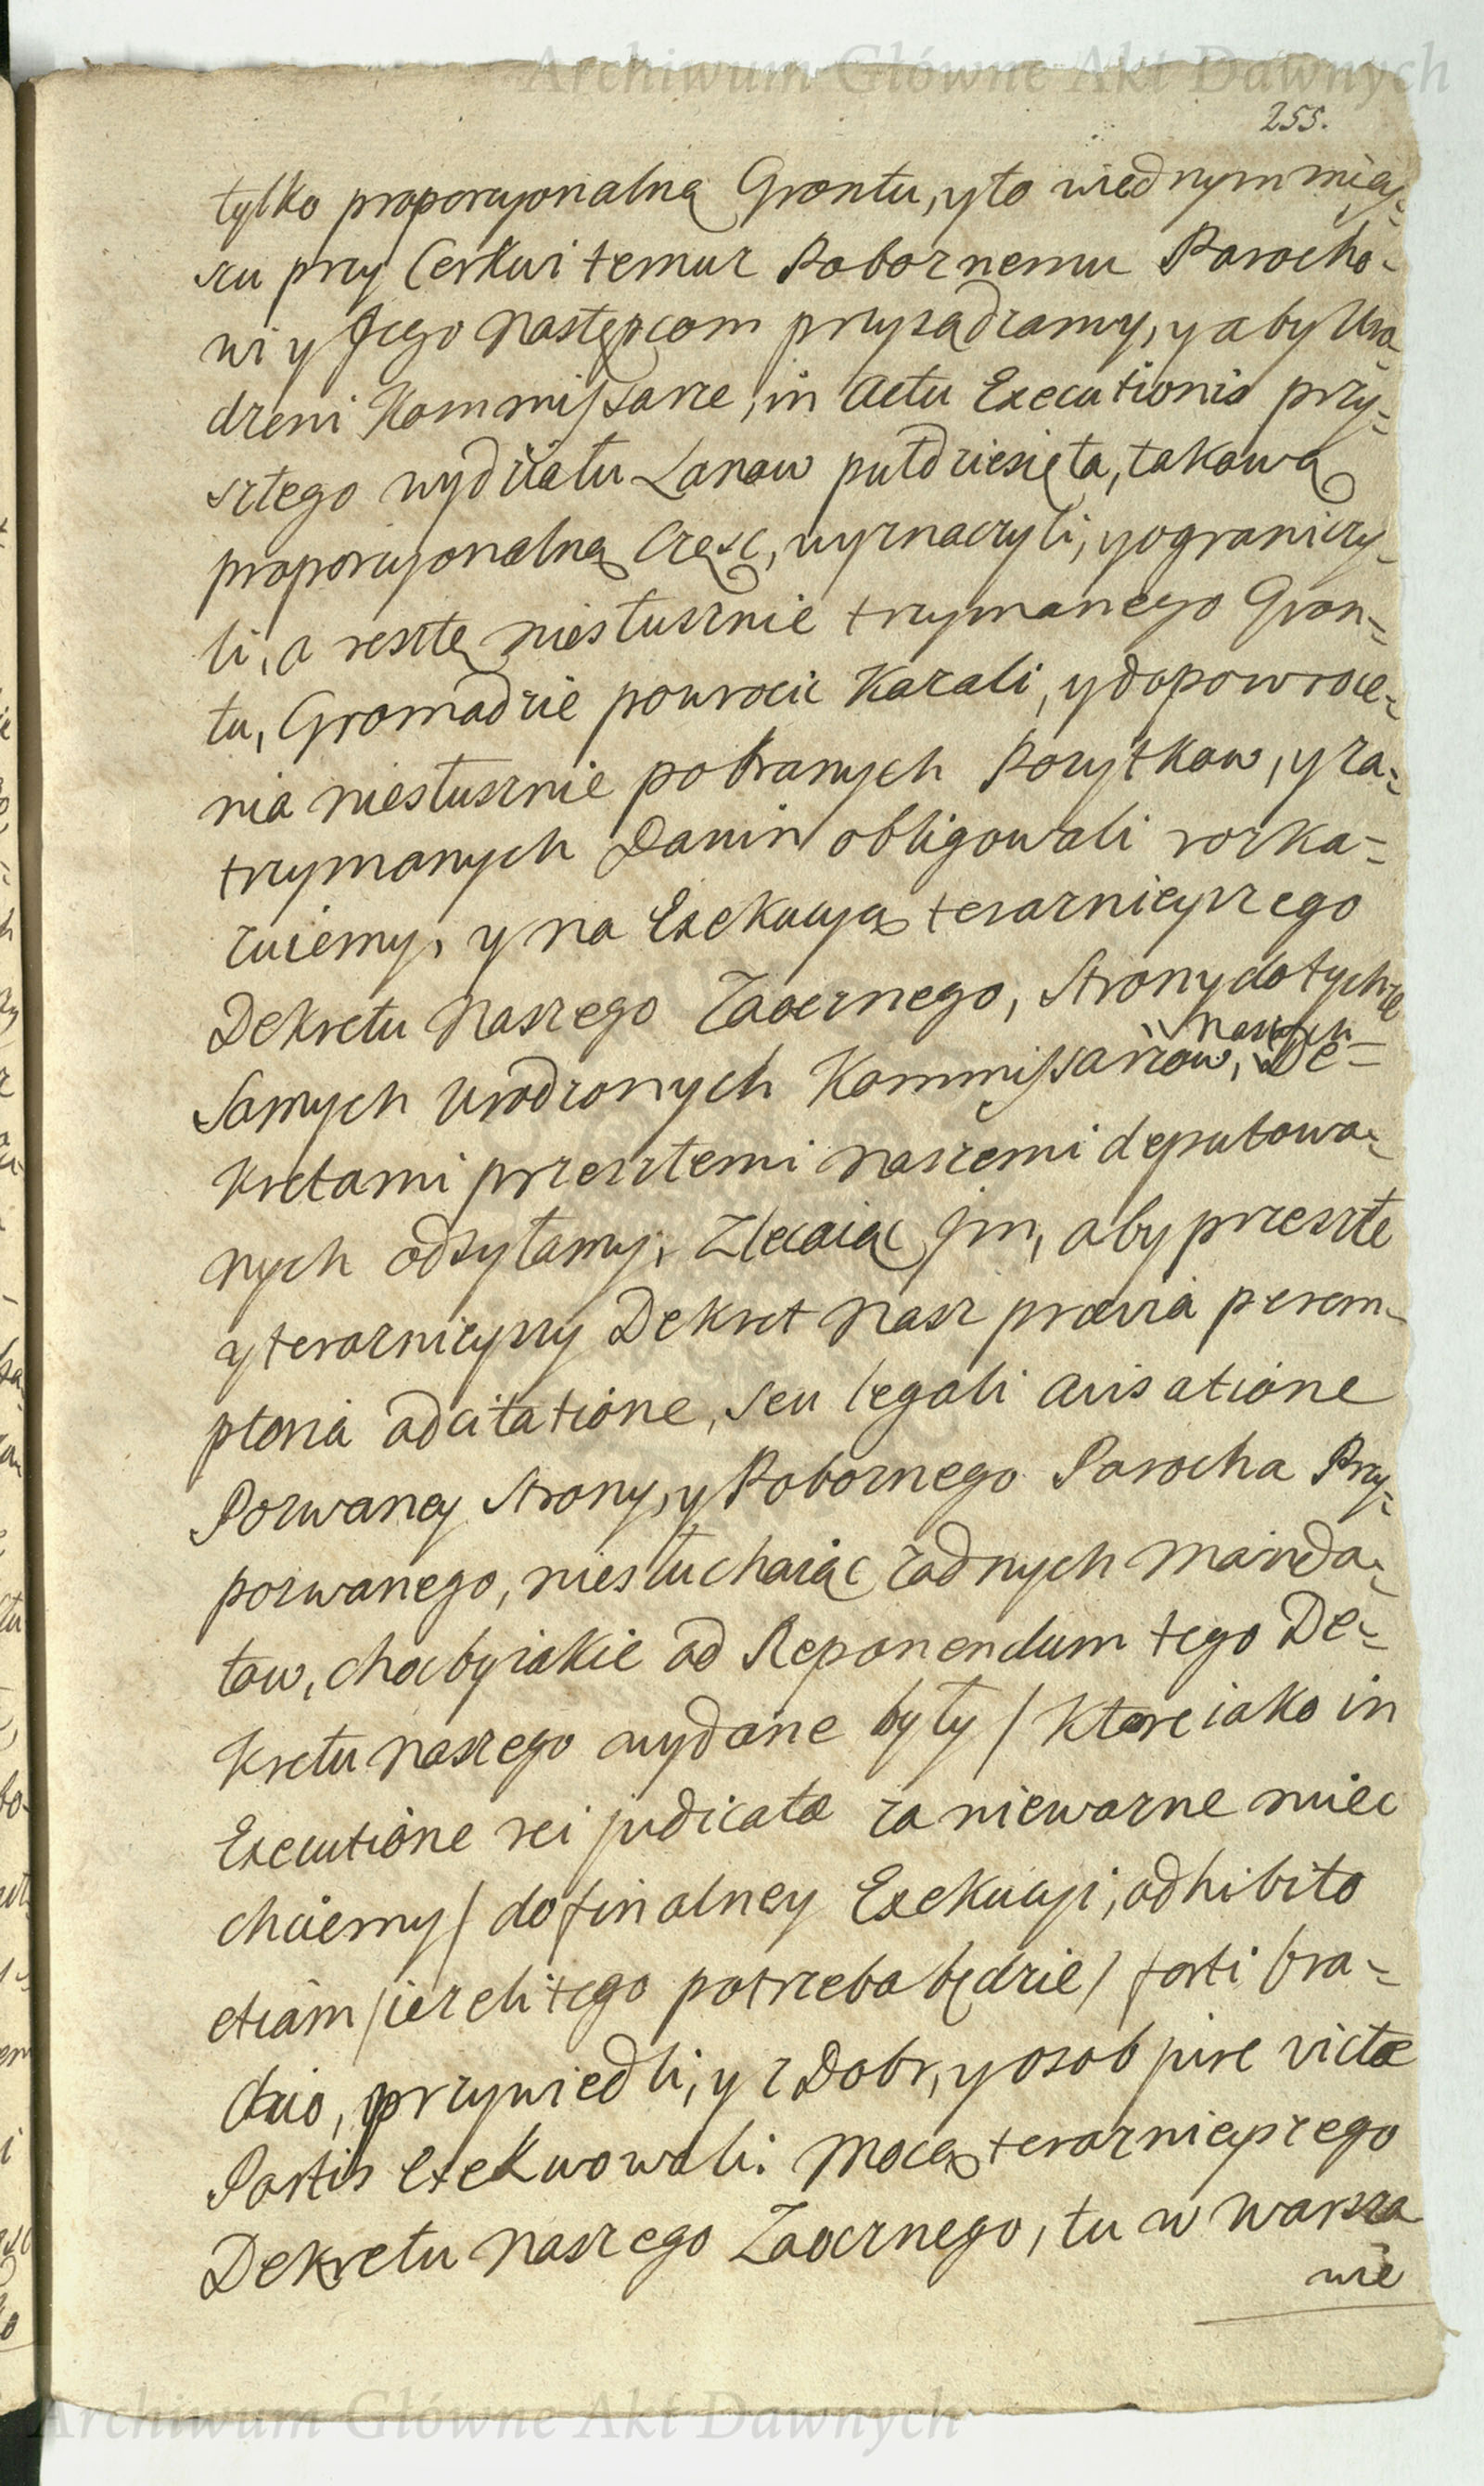 Archiwum Główne Akt Dawnych
255.
tylko proporcyonalną Grontu, y to wiednym miey-
scu przy Cerkwi temuz Pobożnemu Parocho-
wi y Jego Następcom przysądzamy, y aby Uro-
dzeni Kommissarze, in Actu Executionis przy-
szłego wydziału Łanow pułdziesięta, takową
proporcyonalną Część, wyznaczyli, y ograniczy-
li, a resztę niesłusznie trzymanego Gron-
tu, Gromadzie powrocic kazali, y do powroce-
nia niesłusznie pobranych Pozytkow, y za-
trzymanych Danin obligowali rozka-
zuiemy, y na Exekucyą teraznieyszego
Dekretu Naszego Zaocznego, Strony do tychże
Samych Urodzonych Kommissarzow, Naszych De-
kretami przeszłemi Naszemi deputowa-
nych odsyłamy, Zlecaiąc Jm, aby przeszłe
y teraznieyszy Dekret Nasz prævia perem-
ptoria adcitatione, seu legali avisatione
Pozwaney Strony, y Pobożnego Parocha Przy-
pozwanego, niesłuchaiąc żadnych Manda-
tow, choćby iakie ad Reponendum tego De-
kretu Naszego wydane były / ktore iako in
Executione rei judicatæ za nieważne miec
chcemy / do finalney Exekucyi, adhibito
etiam / ieżeli tego potrzeba będzie / forti bra-
chio, przywiedli, y z Dobr, y osob jure victæ
Partis exekwowali. Mocą teraznieyszego
Dekretu Naszego Zaocznego, tu w Warsza
wie
Archiwum Główne Akt Dawnych